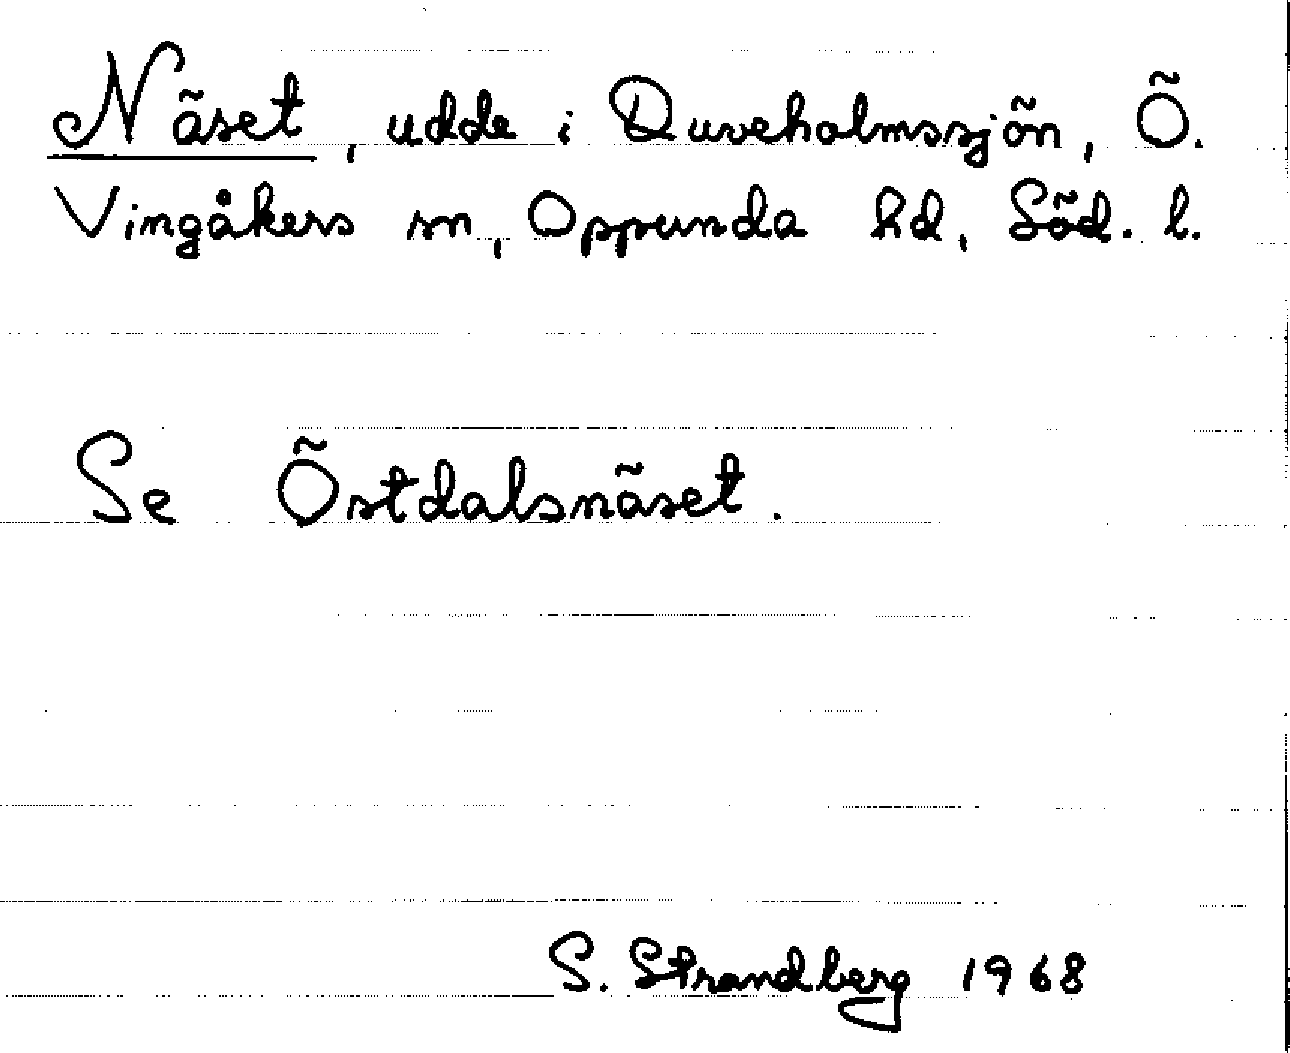 Näset, udde i Duveholmssjön, Ö.
Vingåkers sn, Oppunda hd, Söd. l.
Se Östdalsnäset.
S. Strandberg 1968